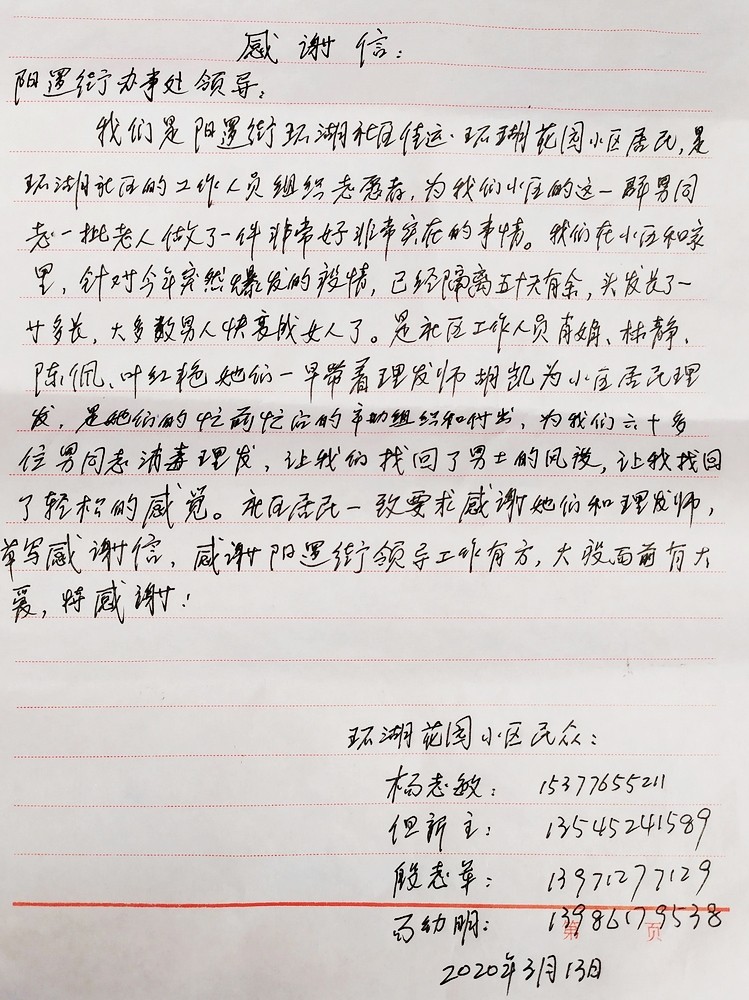 感谢信:
阳逻街办事处领导:
我们是阳逻街环湖社区佳运·环湖花园小区居民,是
环湖社区的工作人员组织志愿者,为我们小区的这一群男同
志一批老人做了一件非常好非常实在的事情。我们在小区和家
里,针对今年突然爆发的疫情,已经隔离五十天有余,头发长了一
寸多长,大多数男人快变成女人了。是社区工作人员肖娟、林静、
陈佩、叶红艳她们一早带着理发师胡凯为小区居民理
发,是她们的忙前忙后的辛勤组织和付出,为我们六十多
位男同志消毒理发,让我们找回了男士的风度,让我找回
了轻松的感觉。社区居民一致要求感谢她们和理发师,
草写感谢信,感谢阳逻街领导工作有方,大疫面前有大
爱,特感谢!
环湖花园小区民众:
杨志敏: 15377655211
但新主: 13545241589
殷志华: 13971277129
幼明: 13986179538
第 页
2020年3月13日